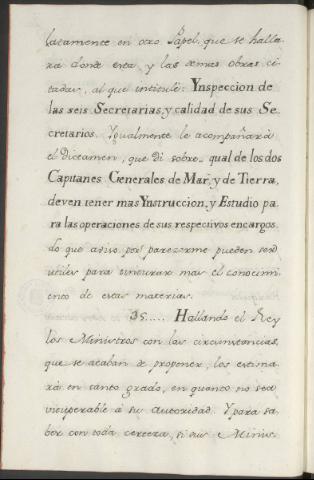 latamente en otro Papel, que se halla-
rá donde esta, y las demas obras ci-
tadas, al que intitulé: Ynspeccion de
las seis Secretarias, y calidad de sus Se
cretarios. Ygualmente le acompañará
el Dictamen, que dí sobre qual de los dos
Capitanes Generales de Mar, y de Tierra,
deven tener mas Ynstruccion, y Estudio pa
ra las operaciones de sus respectivos encargos.
do que aviso por parecerme pueden ser
utiles para mas el conocimi-
ento de estas materias.
35..... Hallando el Rey
los Ministros con las circunstancias,
que se acaban de proponer, los estima-
rá en tanto grado, en quanto no sea
á su autoridad. Y para sa-
ber con toda certeza, si sus Minis-